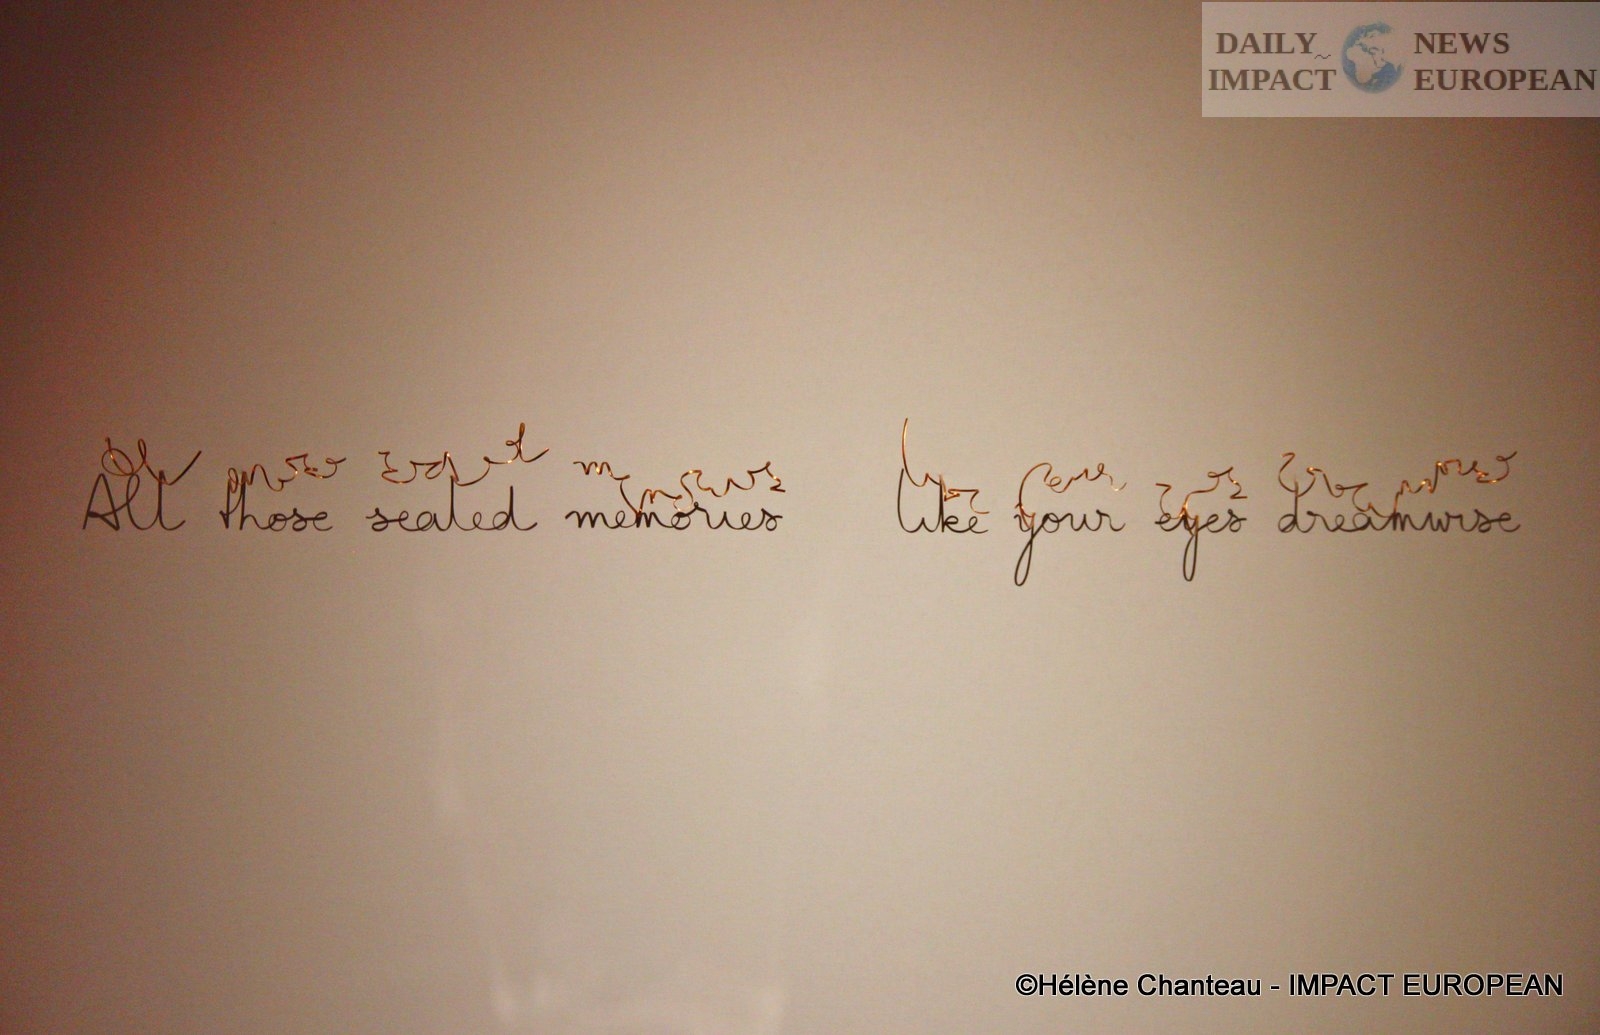 DAILY NEWS
IMPACT EUROPEAN
All those sealed memories like your eyes dreamwise
©Hélène Chanteau - IMPACT EUROPEAN